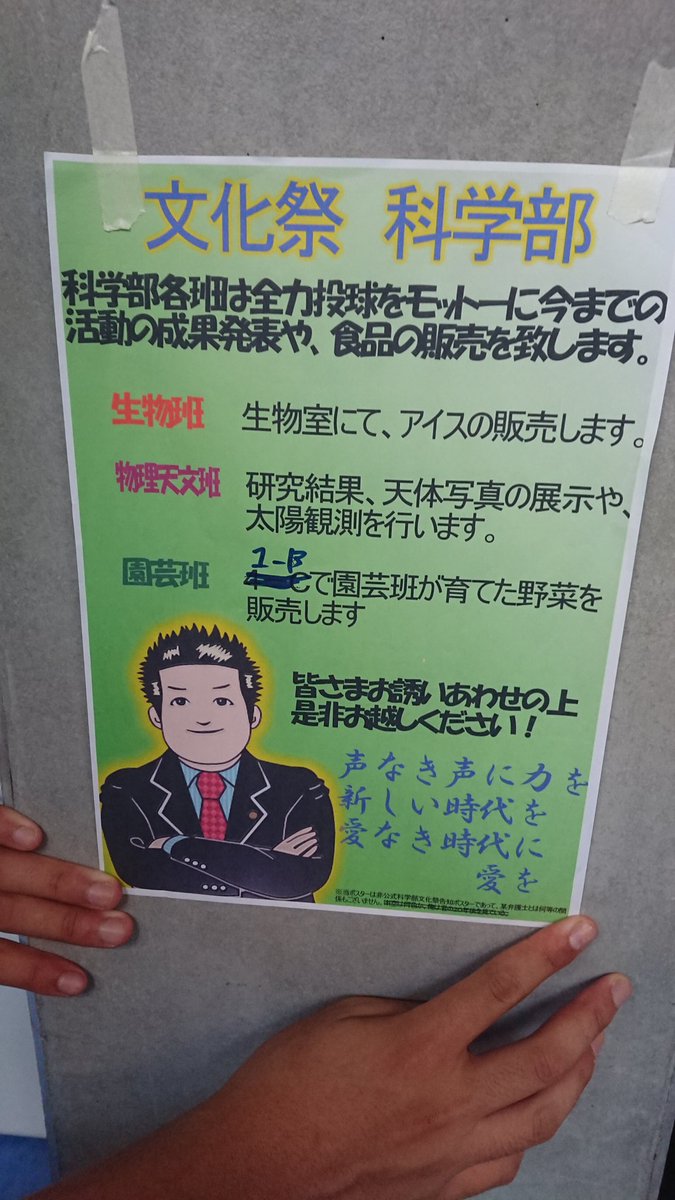 文化祭 科学部
科学部各班は全力投球をモットーに今までの
活動の成果発表や、食品の販売を致します。
生物班 生物室にて、アイスの販売します。
物理天文班 研究結果、天体写真の展示や、
太陽観測を行います。
1-B
園芸班 で園芸班が育てた野菜を
販売します
皆さまお誘いあわせの上
是非お越しください！
声なき声に力を
新しい時代を
愛なき時代に
愛を
※当ポスターは非公式科学部文化祭告知ポスターであって、某弁護士とは何等の関
係もございません。